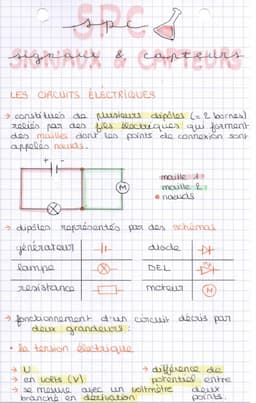 SPC
spc
SIGNAUX & CAPTEURS
signaux & capteurs
LES CIRCUITS ÉLECTRIQUES
→ constitués de plusieurs dipôles (= 2 bornes)
reliés par des fils électriques qui forment
des mailles dont les points de connexion sont
appelés nœuds.
+ -
M
maille 1
maille 2
• nœuds
→ dipôles représentés par des schémas
générateur diode
lampe DEL
résistance moteur M
→ fonctionnement d'un circuit décris par
deux grandeurs :
• la tension électrique
→ U → différence de
→ en volts (V) potentiel entre
→ se mesure avec un voltmètre deux
branché en dérivation points.